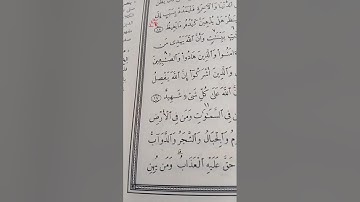 الدُّنْيَا وَالْآخِرَةِ فَلْيَمْدُدْ بِسَبَبٍ إِلَى
هَلْ يُذْهِبَنَّ كَيْدُهُ مَا يَغِيظُ ١٥
بَيِّنَاتٍ وَأَنَّ اللَّهَ يَهْدِي مَن
ءَامَنُوا وَالَّذِينَ هَادُوا وَالصَّابِئِينَ
وَالَّذِينَ أَشْرَكُوا إِنَّ اللَّهَ يَفْصِلُ
نَّ اللَّهَ عَلَىٰ كُلِّ شَيْءٍ شَهِيدٌ ١٧
فِي السَّمَاوَاتِ وَمَن فِي الْأَرْضِ
وَالْجِبَالُ وَالشَّجَرُ وَالدَّوَابُّ
حَقَّ عَلَيْهِ الْعَذَابُ وَمَن يُهِنِ